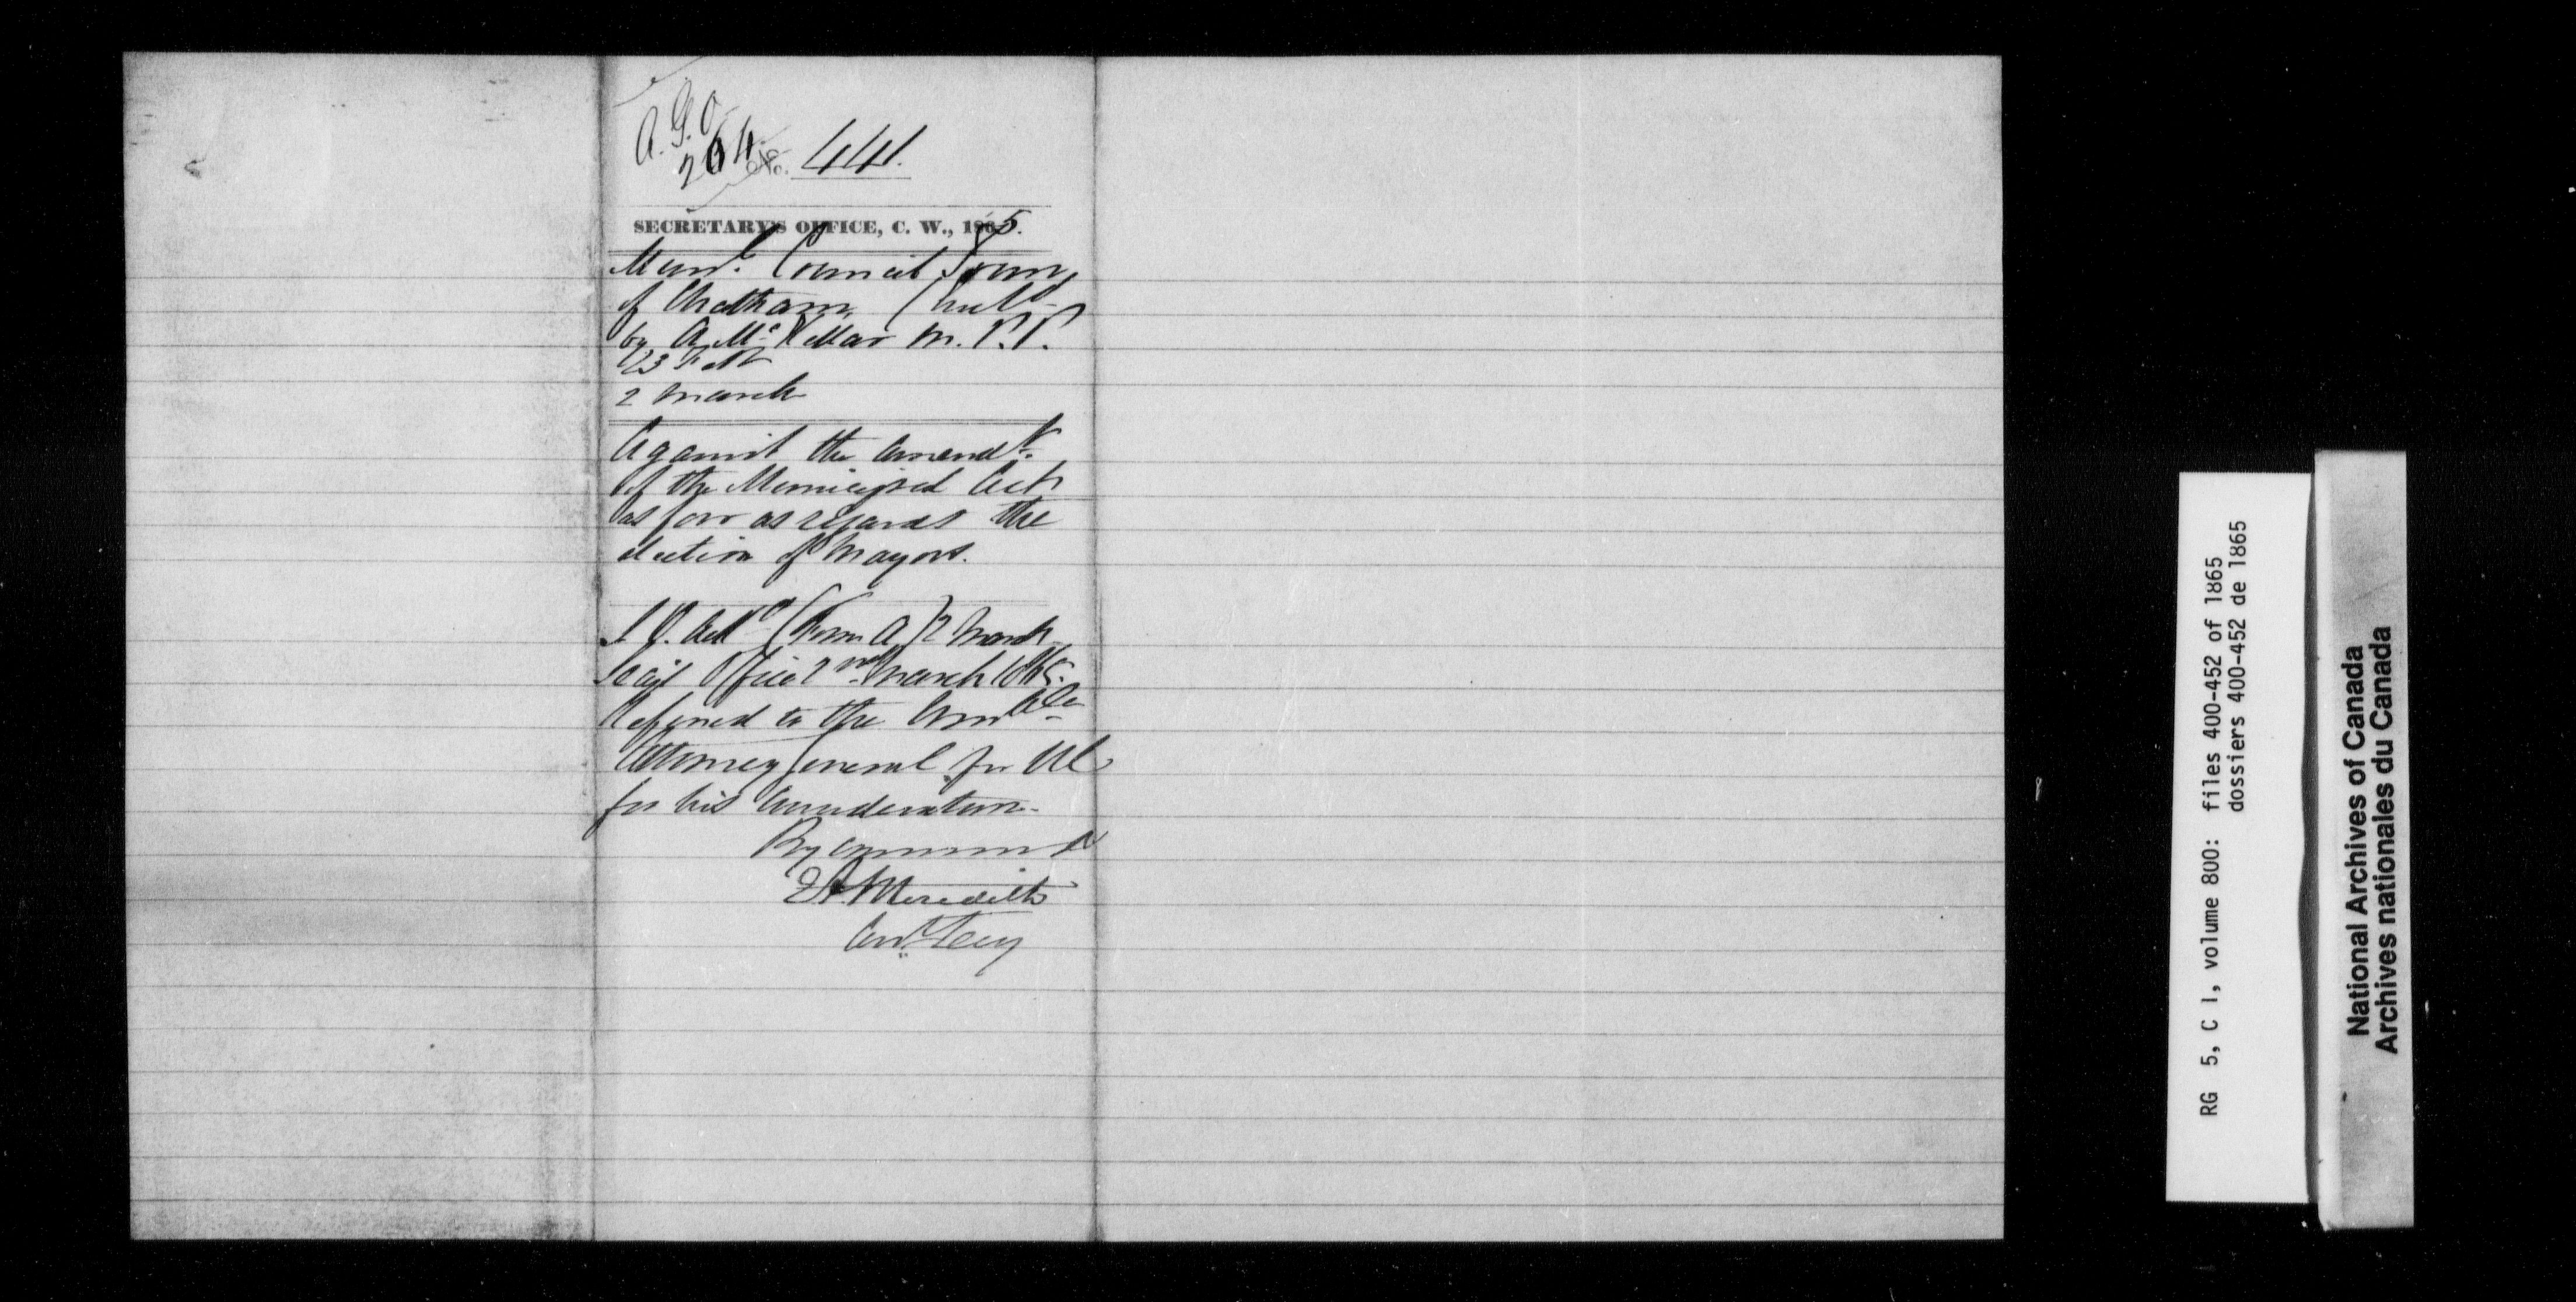 A. G. O.
264
No. 441.
SECRETARY'S OFFICE, C. W., 1865.
Munl. Council Town
of Chatham (Encld
by A McKellar M. P. P.
23 Feb
2 March
Against the Amendt.
of the Municipal Act
as far as regards the
election of Mayors.
Ackd (Form A) 2 March
Office 2nd March 1865.
Referred to the Honble
Attorney General for UC
for his Consideration.
By command
E A Meredith
Asst. Secy
RG 5, C 1, volume 800: files 400-452 of 1865
dossiers 400-452 de 1865
National Archives of Canada
Archives nationales du Canada